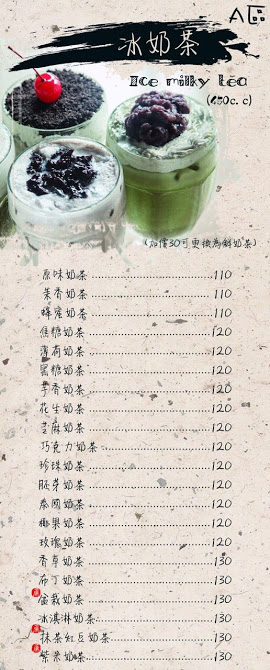 A區
冰奶茶
Ice milky tea
(450c.c)
(加價30可更換為鮮奶茶)
原味奶茶 110
茉香奶茶 110
蜂蜜奶茶 110
焦糖奶茶 120
薄荷奶茶 120
黑糖奶茶 120
芋香奶茶 120
花生奶茶 120
芝麻奶茶 120
巧克力奶茶 120
珍珠奶茶 120
胚芽奶茶 120
泰國奶茶 120
椰果奶茶 120
玫瑰奶茶 120
香草奶茶 130
布丁奶茶 130
盆栽奶茶 130
冰淇淋奶茶 130
抹茶紅豆奶茶 130
紫米奶茶 130